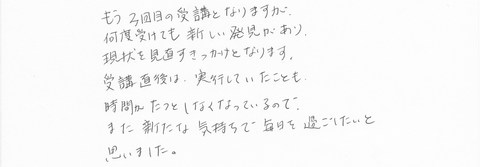 もう3回目の受講となりますが、
何度受けても新しい発見があり、
現状を見直すきっかけとなります。
受講直後は、実行していたことも、
時間がたつとしなくなっているので、
また新たな気持ちで毎日を過ごしたいと
思いました。